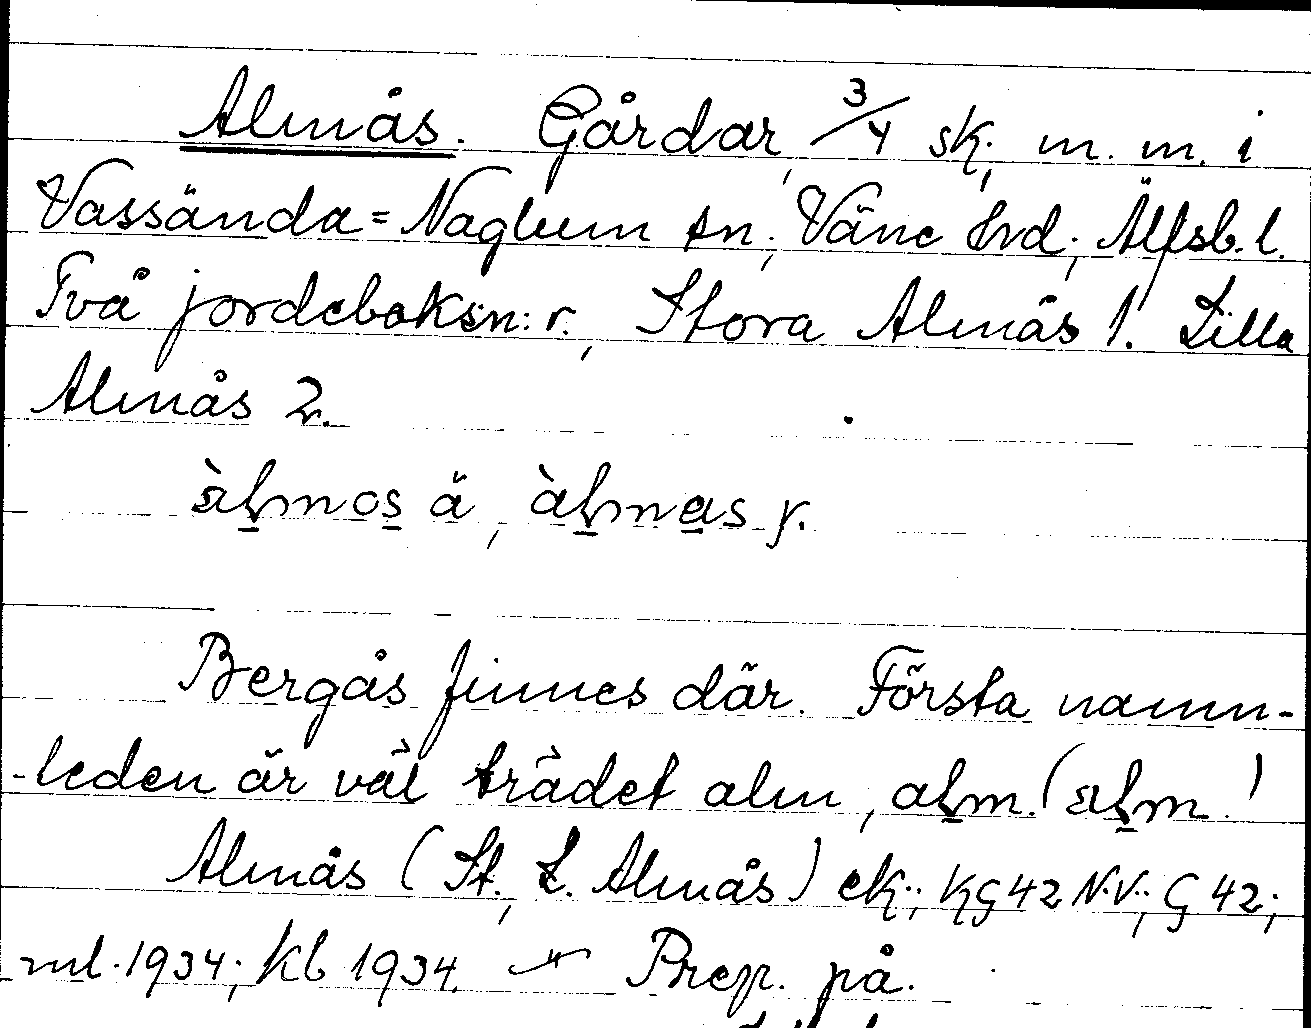 Almås. Gårdar, 3/4 sk, m. m. i
Vassända=Naglum sn, Väne hrd, Älfsb. l.
Två jordeboksn:r, Stora Almås 1. Lilla
Almås 2.
àḻmos ä, àḻmas y.
Bergås finnes där. Första namn-
leden är väl trädet alm, aḻm. (aḻm.)
Almås (St., L. Almås) ek.; KG 42 N.V.; G 42;
ml. 1934; Kb 1934. Prep. på.